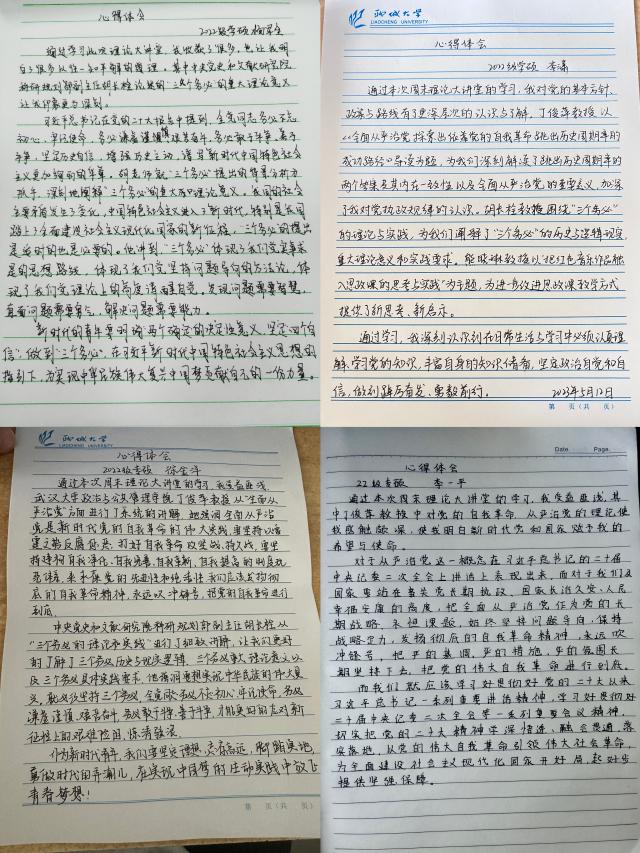 心得体会
2022级学硕
通过学习此次理论大讲堂，我收获了很多，也让我明
白了很多从前一知半解的道理。其中中央党史和文献研究院
科研规划部副主任胡长栓论述的“三个务必”的重大理论意义
让我印象最为深刻。
习近平总书记在党的二十大报告中提到，全党同志务必不忘
初心、牢记使命，务必谦虚谨慎、艰苦奋斗，务必敢于斗争、善于
斗争，坚定历史自信，增强历史主动，谱写新时代中国特色社会主
义更加绚丽的华章。胡老师就“三个必”提出的背景分析为
抓手，深刻地阐释“三个务必”的重大历史理论意义。我国的社会
主要矛盾发生了变化，中国特色社会主义进入了新时代，特别是我国
踏上了全面建设社会主义现代化国家的新征程，“三个务必”的提出
是当时的也是必要的。他讲到，“三个务必”体现了我们党实事求
是的思想路线，体现了我们党坚持问题导向的方法论，体
现了我们党理论上的高度清醒自觉，发现问题需要智慧，
直面问题需要勇气，解决问题需要能力。
新时代的青年要领“两个确立”的决定性意义，坚定“四个自
信”，做到“三个务必”，在习近平新时代中国特色社会主义思想的
指引下，为实现中华民族伟大复兴中国梦贡献自己的一份力量。
聊城大学
LIAOCHENG UNIVERSITY
心得体会
2022级学硕 李潇
通过本次周末理论大讲堂的学习，我对党的基本方针、
政策与路线有了更深层次的认识与了解。丁俊萍教授以
《全面从严治党 探索出依靠党的自我革命跳出历史周期率的
成功路径》导读为题，为我们深刻解读了跳出历史周期率的
两个答案及其内在一致性以及全面从严治党的重要意义，加深
了我对党执政规律的认识。胡长栓教授围绕“三个务必”
的理论与实践，为我们阐释了“三个务必”的历史与逻辑现实、
重大理论意义和实践要求。熊晓琳教授以“把红色音乐作品融
入思政课的思考与实践”为主题，为进一步改进思政课教学方式
提供了新思考、新启示。
通过学习，我深刻认识到在日常生活与学习中必须认真理
解、学习党的知识，丰富自身的知识储备，坚定政治自觉和自
信，做到踔厉奋发、勇毅前行。 2023年5月12日
第 页（共 页）
聊城大学
LIAOCHENG UNIVERSITY
心得体会
2022级专硕 徐金萍
通过本次周末理论大讲堂的学习，我受益匪浅。
武汉大学政治与公共管理学院丁俊萍教授从“全面从
严治党”方面进行了系统的讲解，她强调全面从严治
党是新时代党的自我革命的伟大实践，要坚持以党
建立党反腐惩恶，打好自我革命攻坚战、持久战，要坚
持建构自我净化、自我完善、自我革新、自我提高的制度规
范体系，来矛盾党的先进性和纯洁性。我们应该发扬彻
底的自我革命精神，永远吹冲锋号，把党的自我革命进行
到底。
中央党史和文献研究院科研规划部副主任胡长栓从
“三个务必的理论和实践”进行了细致讲解，让我们更好
的了解了三个务必历史与现实逻辑、三个务必重大理论意义以
及三个务必具体实践要求，他强调要想实现中华民族的伟大复
兴，就必须坚持三个务必，全党同志务必不忘初心、牢记使命，务必
谦虚谨慎、艰苦奋斗，务必敢于斗争、善于斗争，才能更好的应对新
征程上的艰难险阻、惊涛骇浪。
作为新时代青年，我们要坚定理想、志存高远、脚踏实地，
勇做时代的弄潮儿，在实现中国梦的生动实践中放飞
青春梦想！
第 页（共 页）
Date. Page.
心得体会
22级专硕 李一平
通过本次周末理论大讲堂的学习，我受益匪浅，其
中丁俊萍教授中对党的自我革命、从严治党的理论使
我感触颇深，使我明白新时代党和国家赋予我的
希望与使命。
对于从严治党这一概念在习近平总书记的二十届
中央纪委二次全会上讲话上表现出来，而对于我们及
国家要站在事关党长期执政、国家长治久安、人民
幸福安康的高度，把全面从严治党作为党的长
期战略、永恒课题，始终坚持问题导向，保持
战略定力，发扬彻底的自我革命精神，永远吹
冲锋号，把严的基调、严的措施、严的氛围长
期坚持下去，把党的伟大自我革命进行到底。
而我们就应该学习好贯彻好党的二十大以来
习近平总书记一系列重要讲话精神，学习好贯彻好
二十届中央纪委二次全会等一系列重要会议精神，
切实把党的二十大精神学深悟透、融会贯通、落
实落地，以党的伟大自我革命引领伟大社会革命，
为全面建设社会主义现代化国家开好局、起好步
提供坚强保障。